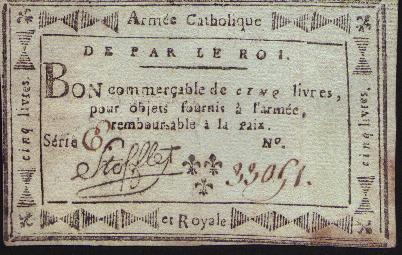 Armée Catholique
DE PAR LE ROI.
BON commerçable de cinq livres,
pour objets fournis à l'armée,
remboursable à la paix.
Série 6 Nº.
Stofflet 33051.
cinq livres.
cinq livres.
et Royale